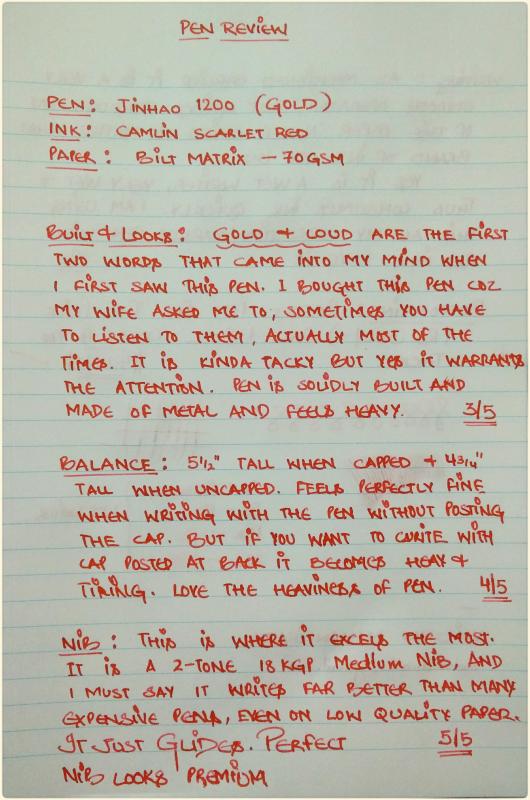 PEN REVIEW
PEN: JINHAO 1200 (GOLD)
INK: CAMLIN SCARLET RED
PAPER: BILT MATRIX - 70GSM
BUILT & LOOKS: GOLD & LOUD ARE THE FIRST
TWO WORDS THAT CAME INTO MY MIND WHEN
I FIRST SAW THIS PEN. I BOUGHT THIS PEN COZ
MY WIFE ASKED ME TO, SOMETIMES YOU HAVE
TO LISTEN TO THEM, ACTUALLY MOST OF THE
TIMES. IT IS KINDA TACKY BUT YES IT WARRANTS
THE ATTENTION. PEN IS SOLIDLY BUILT AND
MADE OF METAL AND FEELS HEAVY. 3/5
BALANCE: 5 1/2" TALL WHEN CAPPED & 4 3/4"
TALL WHEN UNCAPPED. FEELS PERFECTLY FINE
WHEN WRITING WITH THE PEN WITHOUT POSTING
THE CAP. BUT IF YOU WANT TO WRITE WITH
CAP POSTED AT BACK IT BECOMES HEAVY &
TIRING. LOVE THE HEAVINESS OF PEN. 4/5
NIB: THIS IS WHERE IT EXCELS THE MOST.
IT IS A 2-TONE 18 KGP MEDIUM NIB, AND
I MUST SAY IT WRITES FAR BETTER THAN MANY
EXPENSIVE PENS, EVEN ON LOW QUALITY PAPER.
IT JUST GLIDES. PERFECT 5/5
NIB LOOKS PREMIUM